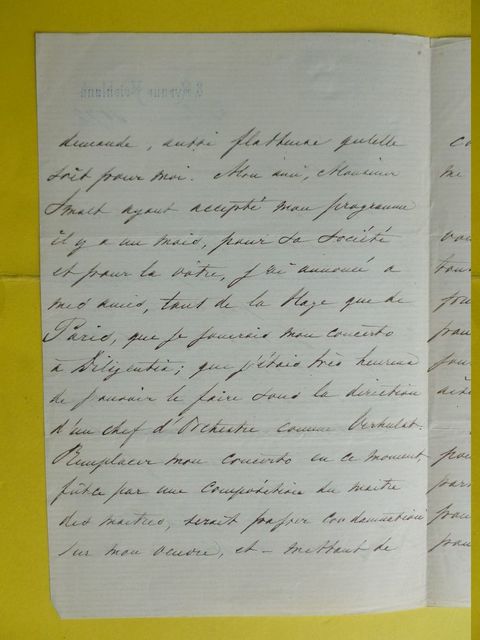 demande, aussi flatteuse qu'elle
soit pour moi. Mon ami, Monsieur
Smalt ayant accepté mon programme
il y a un mois, pour sa société
et pour la vôtre, j'ai annoncé a
mes amis, tant de la Haye que de
Paris, que je jouerais mon concerto
à Diligentia; que j'étais très heureux
de pouvoir le faire sous la direction
d'un chef d'Orchestre comme Verhulst.
Remplacer mon concerto en ce moment
fût-ce par une composition du maitre
des maitres, serait passer condamnation
sur mon oeuvre, et – mettant de